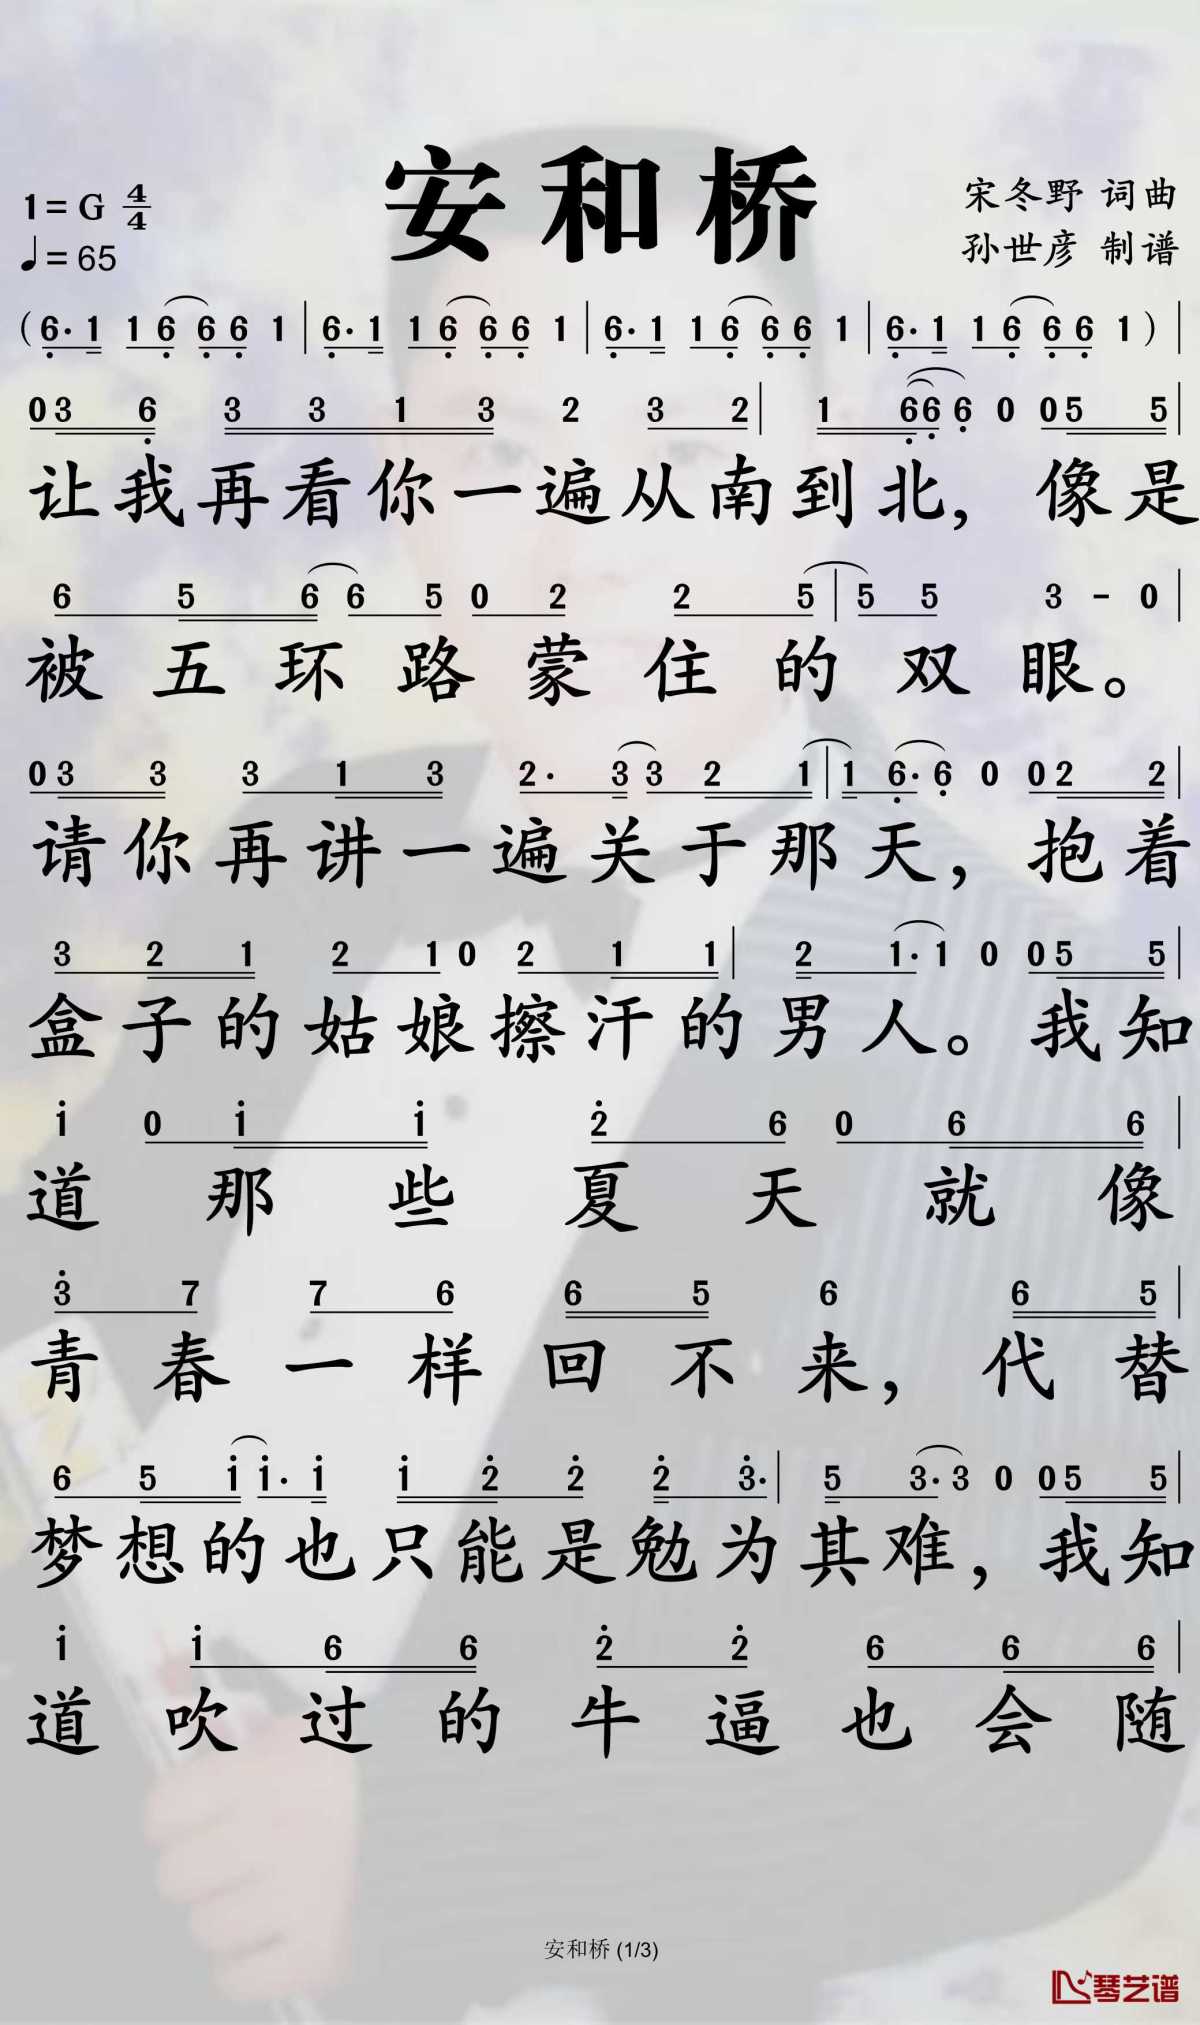 安和桥
1=G 4/4
♩=65
宋冬野 词曲
孙世彦 制谱
(6·1 16 66 1|6·1 16 66 1|6·1 16 66 1|6·1 16 66 1)|
03 6 3 3 1 3 2 3 2| 1 6 6 6 0 05 5|
让我再看你一遍从南到北，像是
6 5 6 6 5 0 2 2 5|5 5 3 - 0|
被五环路蒙住的双眼。
03 3 3 1 3 2· 3 3 2 1|1 6· 6 0 02 2|
请你再讲一遍关于那天，抱着
3 2 1 2 1 0 2 1 1| 2 1· 1 0 05 5|
盒子的姑娘擦汗的男人。我知
1 0 1 1 2 6 0 6 6|
道那些夏天就像
3 7 7 6 6 5 6 6 5|
青春一样回不来，代替
6 5 1 1· 1 1 2 2 2 3·|5 3· 3 0 05 5|
梦想的也只能是勉为其难，我知
1 1 6 6 2 2 6 6 6|
道吹过的牛逼也会随
安和桥 (1/3)
琴艺谱